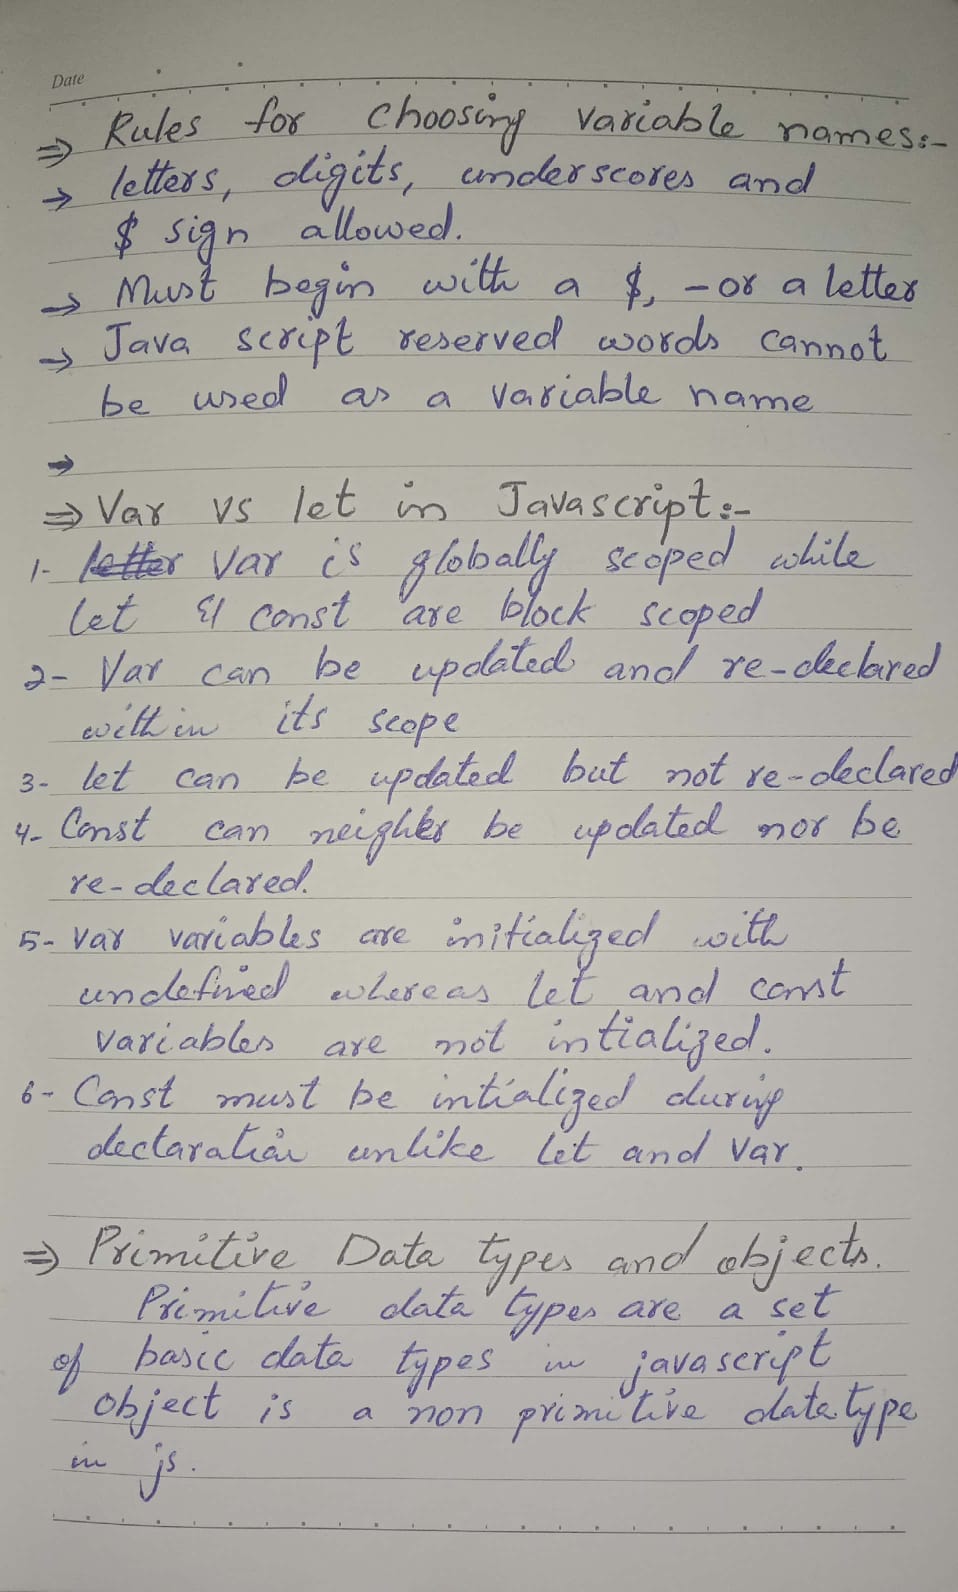 Date
⇒ Rules for choosing variable names:-
→ letters, digits, underscores and
$ sign allowed.
→ Must begin with a $, - or a letter
→ Java script reserved words cannot
be used as a variable name
→
⇒ Var vs let in Javascript:-
1- letter Var is globally scoped while
let & const are block scoped
2- Var can be updated and re-declared
within its scope
3- let can be updated but not re-declared
4- Const can neighter be updated nor be
re-declared.
5- Var variables are initialized with
undefined whereas let and const
variables are not intialized.
6- Const must be intialized during
declaration unlike let and Var.
⇒ Primitive Data types and objects.
Primitive data types are a set
of basic data types in javascript
object is a non primitive datatype
in js.